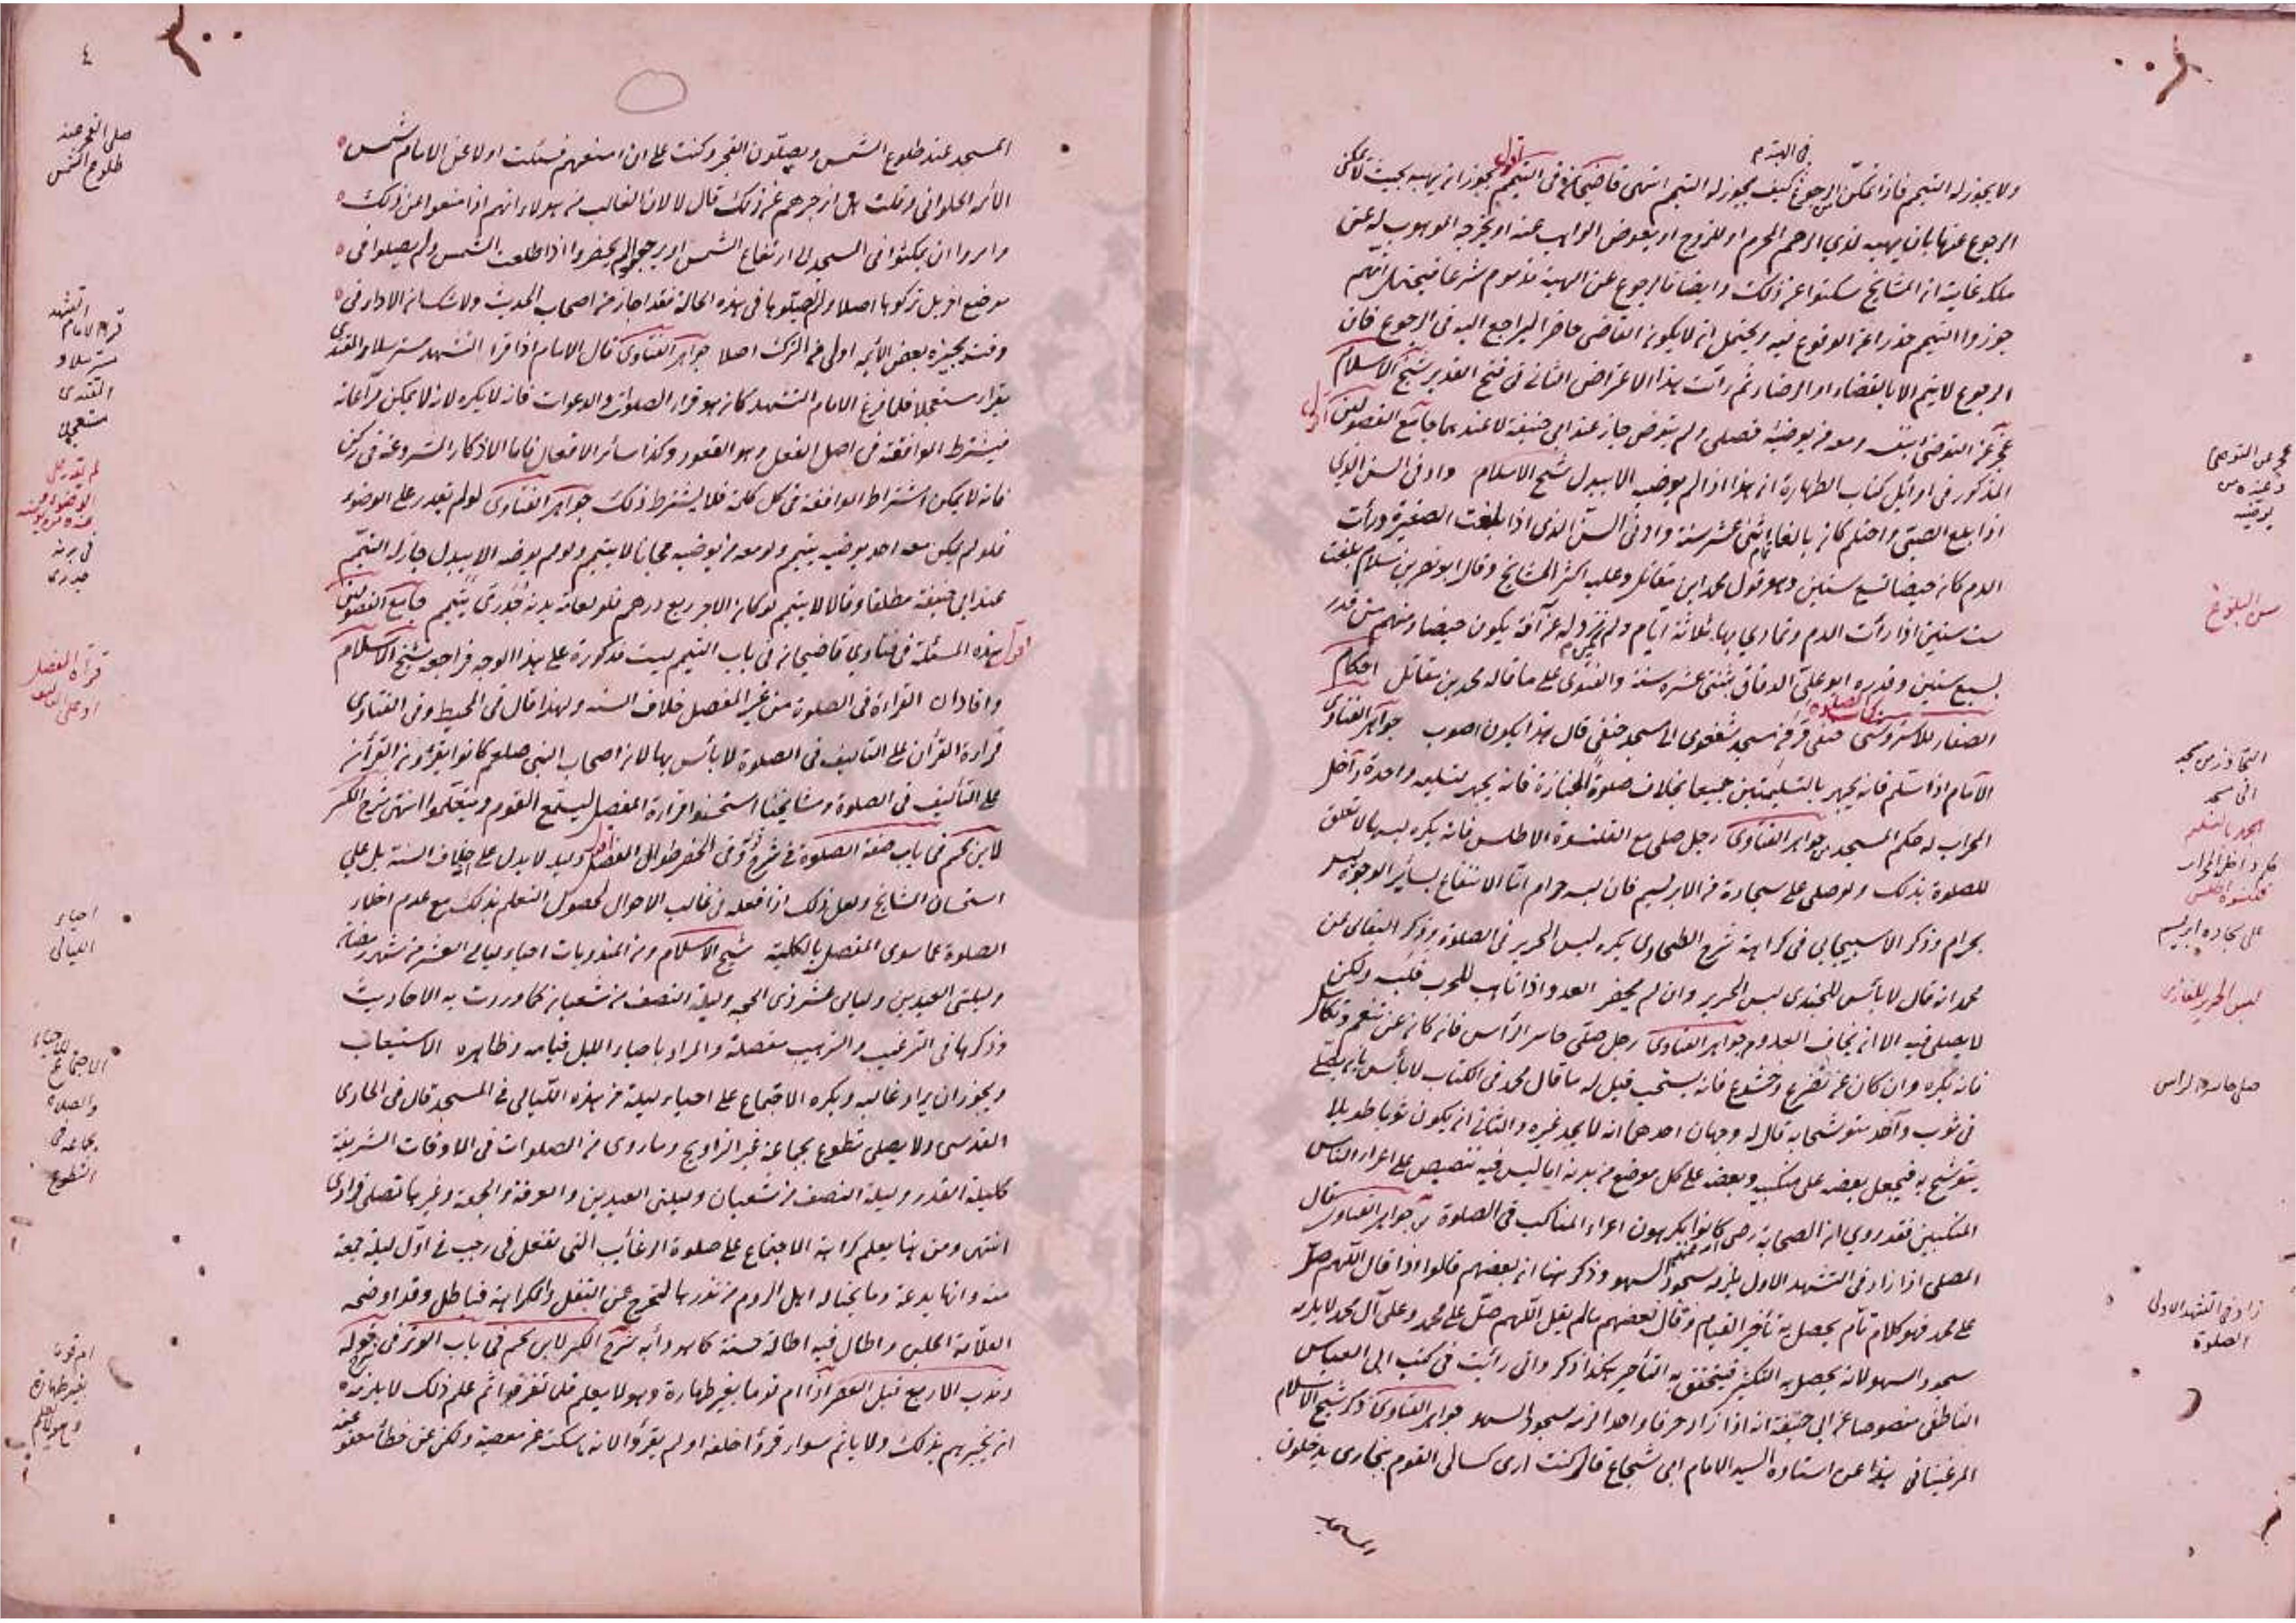 في الهبة م
ولا يجوز له التيمم فاذا تمكن من الرجوع كيف يجوز له التيمم انتهى قاضيخان في التيمم اقول يجوز ان يهبه بحيث لا يمكن
الرجوع عنها بان يهبه لذي الرحم المحرم او للزوج او يعوض الواهب عنه او يخرجه الموهوب له عن
ملكه غايته ان المشايخ سكتوا عن ذلك وايضا فالرجوع عن الهبة مذموم شرعا فيحتمل انهم
جوزوا التيمم حذرا عن الوقوع فيه ويحتمل ان لا يكون القاضي حاضرا ليراجع اليه في الرجوع فان
الرجوع لا يتم الا بالقضاء او الرضاء ثم رأيت هذا الاعتراض الثاني في فتح القدير شيخ الاسلام
عجز عن التوضي بنفسه ومعه من يوضيه فصلى ولم يتوض جاز عند ابي حنيفة لا عندهما جامع الفصولين اقول
المذكور في اوائل كتاب الطهارة ان هذا اذا لم يوضيه الا ببدل شيخ الاسلام وادنى السن الذي
اذا بلغ الصبي واحتلم كان بالغا تمام اثنى عشر سنة وادنى السن الذي اذا بلغت الصغيرة ورأت
الدم كان حيضا تسع سنين وهو قول محمد ابن مقاتل وعليه اكثر المشايخ وقال ابو نصر بن سلام بلغت
ست سنين اذا رأت الدم وتمادى بها ثلاثة ايام ولم نره له عن آفة يكون حيضا ومنهم من قدر
بسبع سنين وقدره ابو علي الدقاق بثنتي عشره سنة والفتوى على ما قاله محمد بن مقاتل احكام
الصغار للاستروشنى كتاب الصلوة حنفي فر من مسجد شفعوي الى مسجد حنفي قال هذا يكون اصوب جواهر الفتاوى
الامام اذا سلم فانه يجهر بالتسليمتين جميعا بخلاف صلوة الجنازة فانه يجهر بتسليمه واحدة داخل
المحراب له حكم المسجد من جواهر الفتاوى رجل صلى مع القلنسوة الاطلس فانه يكره لبسها لا تعلق
للصلوة بذلك ولو صلى على سجادة من الابريسم فان لبسه حرام اما الانتفاع بسائر الوجوه ليس
بحرام وذكر الاسبيجابي في كراهة شرح الطحاوى يكره لبس الحرير في الصلوة وذكر البقالى عن
محمد انه قال لا بأس للجندى لبس الحرير وان لم يحضر العدو اذا تاهب للحرب قلبه ولكن
لا يصلى فيه الا ان يخاف العدو من جواهر الفتاوى رجل صلى حاسر الرأس فان كان عن تنعم وتكاسل
فانه يكره وان كان عن تضرع وخشوع فانه يستحب قيل له ما قال محمد في الكتاب لا بأس بان يصلي
في ثوب واحد متوشحا به قال له وجهان احدهما انه لا يجد غيره والثاني ان يكون ثوبا طويلا
يتوشح به فيجعل بعضه على منكبيه وبعضه على كل موضع من بدنه اما ليس فيه تنصيص على اعراء الناس
المنكبين فقد روي ان الصحابة رضى كانوا يكرهون اعراء المناكب في الصلوة من جواهر الفتاوى قال
المصلى اذا زاد في التشهد الاول يلزمه سجود السهو وذكر هنا ان بعضهم قالوا اذا قال اللهم صل
على محمد فهو كلام تام يحصل به تأخير القيام وقال بعضهم ما لم يقل اللهم صل على محمد وعلى آل محمد لا يلزمه
سجود السهو لانه يحصل به التكثير فيتحقق به التأخير هكذا ذكر واني رأيت في كتب ابى العباس
الناطفي منصوصا عن ابي حنيفة انه اذا زاد حرفا واحدا لزمه سجود السهو جواهر الفتاوى ذكر شيخ الاسلام
المرغينانى هذا عن استاذه السيد الامام ابى شجاع قال كنت ارى كسالى القوم بخارى يدخلون
المسجد
عجز عن التوضى
وعنده من
يوضيه
سن البلوغ
التجاوز من مسجد
الى مسجد
الجهر بالتسليم
حكم داخل المحراب
قلنسوة اطلس
على سجاده ابريسم
لبس الحرير للغازى
صلى حاسر الراس
زاد في التشهد الاول
الصلوة
٤
المسجد عند طلوع الشمس ويصلون الفجر وكنت على ان امنعهم فسئلت اولا عن الامام شمس
الائمه الحلوانى وقلت هل ازجرهم عن ذلك قال لا لان الغالب من هولاء انهم اذا منعوا من ذلك
وامروا ان يمكثوا في المسجد الى ارتفاع الشمس او يرجعوا لم يحضروا اذا طلعت الشمس ولم يصلوا في
موضع اخر بل تركوها اصلا ولم يصلوها في هذه الحالة فقد اجاز من اصحاب الحديث ولا شك ان الاداء في
وقت يجيزه بعض الائمه اولى من الترك اصلا جواهر الفتاوى قال الامام اذا قرأ التشهد مسترسلا والمقتدى
يقرأ مستعجلا فلما فرغ الامام التشهد كان هو قرأ الصلوات والدعوات فانه لا يكره لانه لا يمكن مراعاته
فيشترط الموافقة في اصل الفعل وهو القعود وكذا سائر الافعال فاما الاذكار المشروعة في ركن
فانه لا يمكن اشتراط الموافقة في كل كلمة فلا يشترط ذلك جواهر الفتاوى لو لم يقدر على الوضوء
فلو لم يكن معه احد يوضيه يتيمم ولو معه من يوضيه مجانا لا يتيمم ولو لم يوضه الا ببدل جاز له التيمم
عند ابي حنيفة مطلقا وقالا لا يتيمم لو كان الاجر ربع درهم فلو بعامة بدنه جدري يتيمم جامع الفصولين
اقول هذه المسئلة في فتاوي قاضيخان في باب التيمم ليست مذكورة على هذا الوجه فراجعه شيخ الاسلام
وافاد ان القراءة في الصلوة من غير المفصل خلاف السنه ولهذا قال في المحيط وفي الفتاوى
قراءة القرآن على التاليف في الصلوة لا بأس بها لان اصحاب النبي صلعم كانوا يقرؤن القرآن
على التأليف في الصلوة ومشايخنا استحسنوا قراءة المفصل ليستمع القوم ويتعلموا انتهى شرح الكنز
لابن نجيم في باب صفة الصلوة في شرح قوله وفى الحضر طوال المفصل اقول وليه لا يدل على خلاف السنة بل على
استحسان المشايخ ولعل ذلك اذا فعله في غالب الاحوال لحصول التعلم بذلك مع عدم اخلاء
الصلوة عما سوى المفصل بالكلية شيخ الاسلام ومن المندوبات احياء ليالى العشر من شهر رمضان
وليلتى العيدين وليالى عشر ذى الحجه وليلة النصف من شعبان كما وردت به الاحاديث
وذكرها في الترغيب والترهيب مفصلة والمراد باحياء الليل قيامه وظاهره الاستيعاب
ويجوز ان يراد غالبه ويكره الاجتماع على احياء ليلة من هذه الليالى في المسجد قال في الحاوى
القدسى ولا يصلى تطوع بجماعة غير التراويح وما روى من الصلوات في الاوقات الشريفة
كليلة القدر وليلة النصف من شعبان وليلتى العيدين والعرفة والجمعة وغيرها تصلى فرادى
انتهى ومن هنا يعلم كراهة الاجتماع على صلوة الرغائب التى تفعل في رجب في اول ليلة جمعة
منه وانها بدعة وما يحتاله اهل الروم من نذرها لتخرج عن النفل والكراهة فباطل وقد اوضحه
العلامة الحلبى واطال فيه اطالة حسنة كما هو دأبه شرح الكنز لابن نجيم في باب الوتر في شرح قوله
وندب الاربع قبل العصر اذا ام قوما بغير طهارة وهو لا يعلم فلما تفرقوا ثم علم ذلك لا يلزمه
ان يخبرهم بذلك ولا يأثم سواء قرؤا خلفه او لم يقرؤا لانه ساكت عن معصية ولكن عن خطأ معفو عنه
صلى الفجر عند
طلوع الشمس
التشهد
قرأ الامام
مسترسلا و
المقتدى
مستعجلا
لم يقدر على
الوضوء و
عنده من يوضيه
في بدنه
جدرى
قرأة المفصل
او على التاليف
احياء
الليالى
الاجتماع
للاحياء
والصلاة
بجماعة في
التطوع
ام قوما
بغير طهارة
وهو لا يعلم